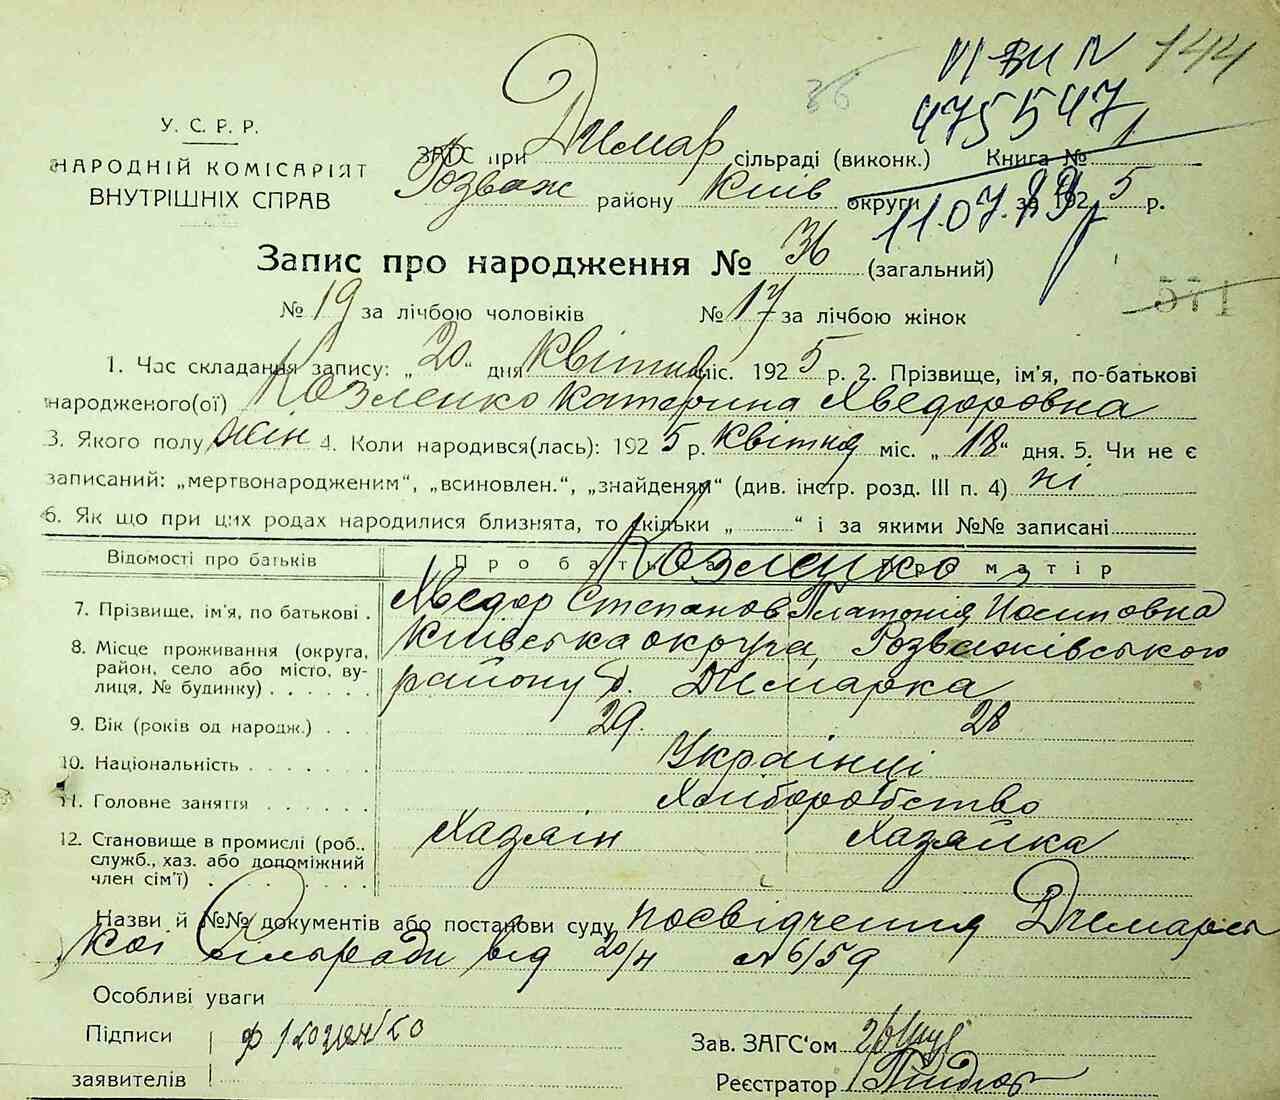 VI-БК N 144
36 475547
У. С. Р. Р.
НАРОДНІЙ КОМІСАРІЯТ
ВНУТРІШНІХ СПРАВ
ЗАГС при Димар сільраді (виконк.) Книга № 1
Розваж району Київ округи за 1925 р.
11.07.89р
Запис про народження № 36 (загальний)
571
№ 19 за лічбою чоловіків № 17 за лічбою жінок
1. Час складання запису: „20" дня Квітня міс. 1925 р. 2. Прізвище, ім'я, по-батькові
народженого(ої) Козленко Катерина Хведоровна
3. Якого полу жін 4. Коли народився(лась): 1925 р. Квітня міс. „18" дня. 5. Чи не є
записаний: „мертвонародженим", „всиновлен.", „знайденям" (див. інстр. розд. III п. 4) ні
6. Як що при цих родах народилися близнята, то скільки „ " і за якими №№ записані
Відомості про батьків Про батька Про матір
Козленко
7. Прізвище, ім'я, по батькові . Хведор Степанов Платонія Йосиповна
8. Місце проживання (округа, район, село або місто, вулиця, № будинку) . . . . . . Київська округа, Розважівського
району д. Димарка
9. Вік (років од народж.) . . 29. 28
10. Національність . . . . . . . Українці
11. Головне заняття . . . . . . Хліборобство
12. Становище в промислі (роб.. служб., хаз. або допоміжний член сім'ї) . . . . . . Хазяїн Хазяйка
Назви й №№ документів або постанови суду посвідчення Димарсь
кої Сільради від 20/4 №6/59
Особливі уваги
Підписи
заявителів
Ф Козленко
Зав. ЗАГС'ом
Реєстратор